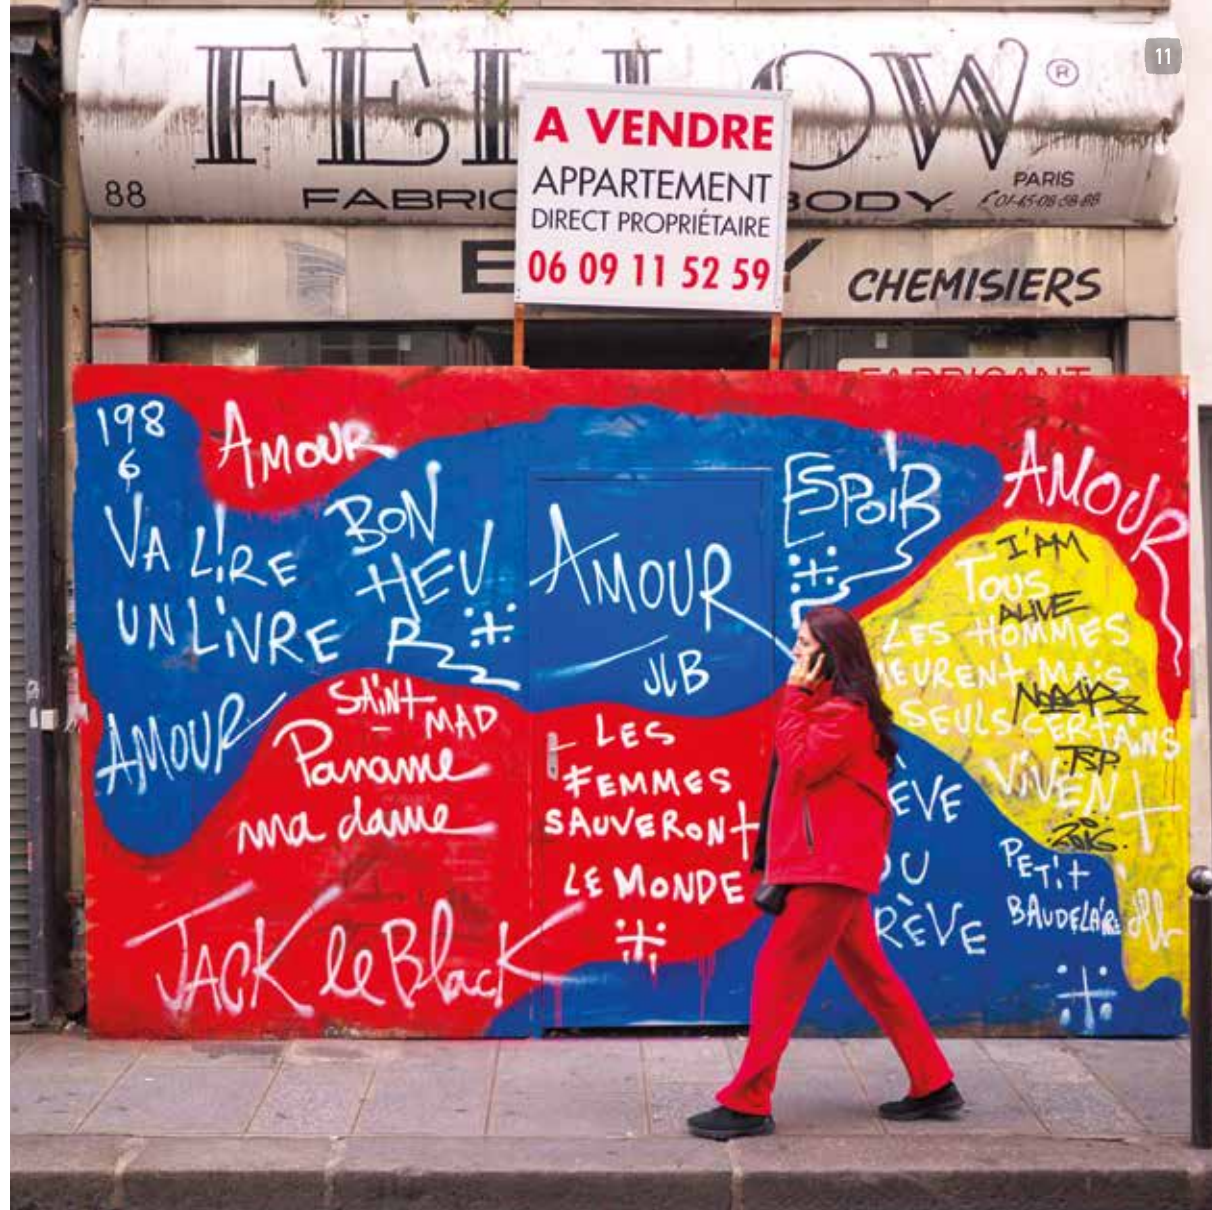 11
FELLOW®
88
FABRIC
BODY
PARIS
01-45-08-58-88
A VENDRE
APPARTEMENT
DIRECT PROPRIÉTAIRE
06 09 11 52 59
CHEMISIERS
FABRICANT
198
6
AMOUR
VA LIRE
UN LIVRE
BON
HEU
R
AMOUR
JLB
ESPOIR
AMOUR
I'AM
ALIVE
TOUS
LES HOMMES
MEURENT MAIS
SEULS CERTAINS
VIVENT
TSP
AMOUR
SAINT
MAD
Paname
ma dame
JACK le Black
LES
FEMMES
SAUVERONT
LE MONDE
EVE
OU
RÈVE
PETIT
BAUDELAIRE